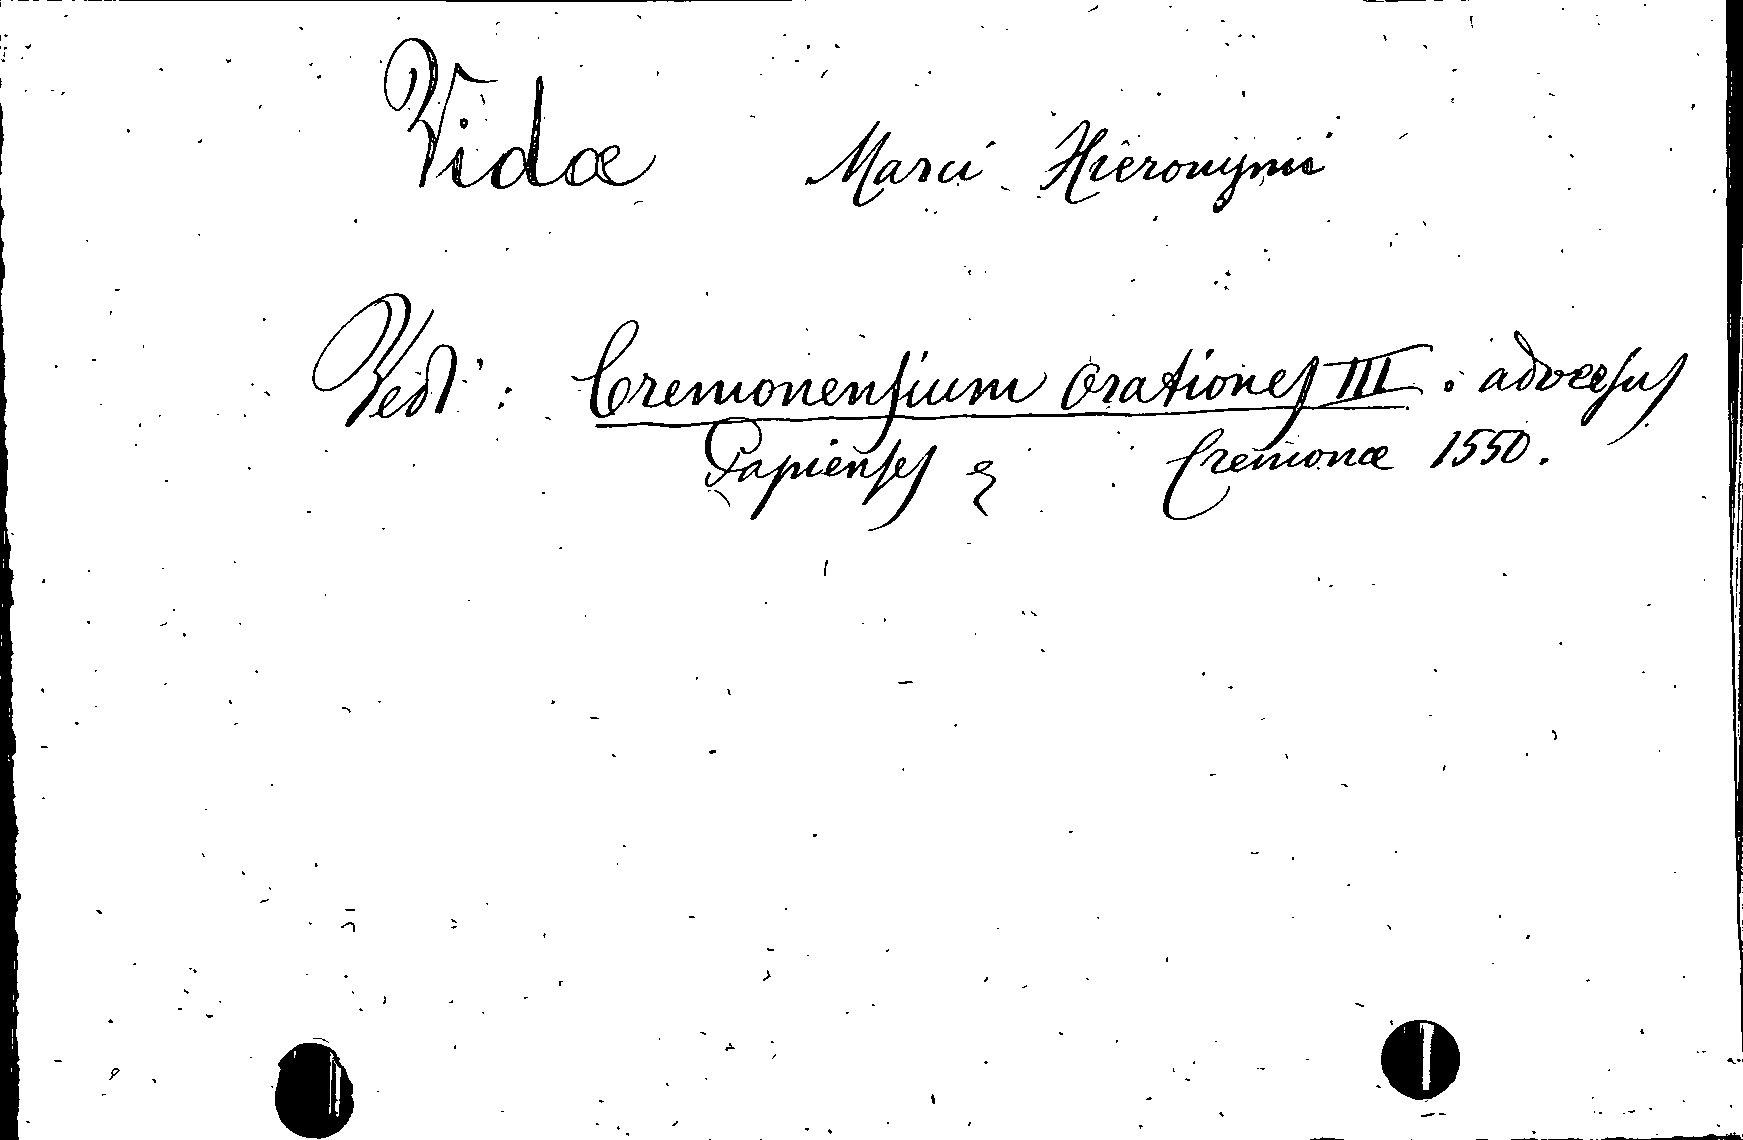 Vidæ Marci Hieronymi
Vedi: Cremonensium Orationes III. adversus
Papienses & Cremonæ 1550.